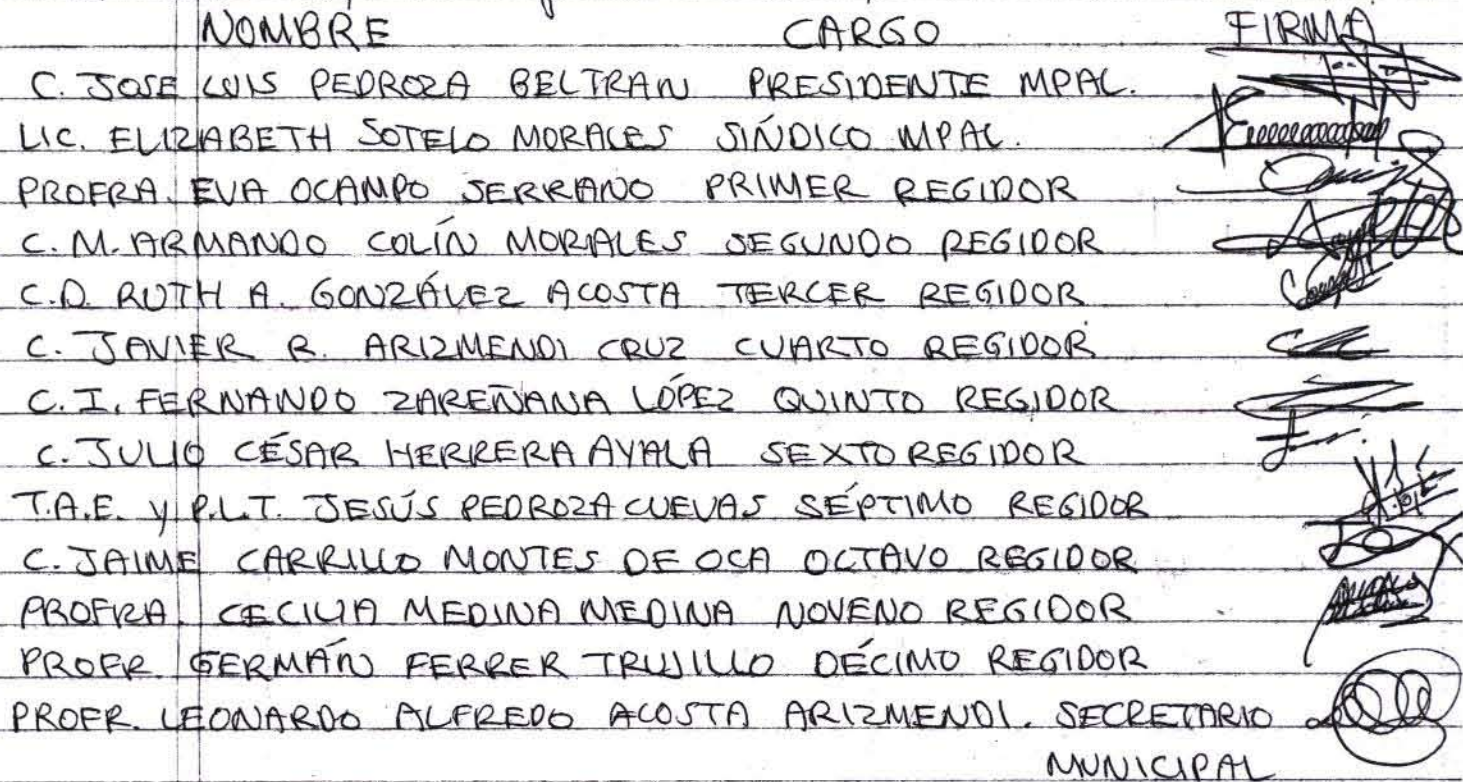 NOMBRE CARGO FIRMA
C. JOSE LUIS PEDROZA BELTRAN PRESIDENTE MPAL.
LIC. ELIZABETH SOTELO MORALES SÍNDICO MPAL.
PROFRA. EVA OCAMPO SERRANO PRIMER REGIDOR
C. M. ARMANDO COLÍN MORALES SEGUNDO REGIDOR
C.D. RUTH A. GONZÁLEZ ACOSTA TERCER REGIDOR
C. JAVIER R. ARIZMENDI CRUZ CUARTO REGIDOR
C. I. FERNANDO ZAREÑANA LÓPEZ QUINTO REGIDOR
C. JULIO CÉSAR HERRERA AYALA SEXTO REGIDOR
T.A.E. Y P.L.T. JESÚS PEDROZA CUEVAS SÉPTIMO REGIDOR
C. JAIME CARRILLO MONTES DE OCA OCTAVO REGIDOR
PROFRA. CECILIA MEDINA MEDINA NOVENO REGIDOR
PROFR. GERMÁN FERRER TRUJILLO DÉCIMO REGIDOR
PROFR. LEONARDO ALFREDO ACOSTA ARIZMENDI. SECRETARIO
MUNICIPAL